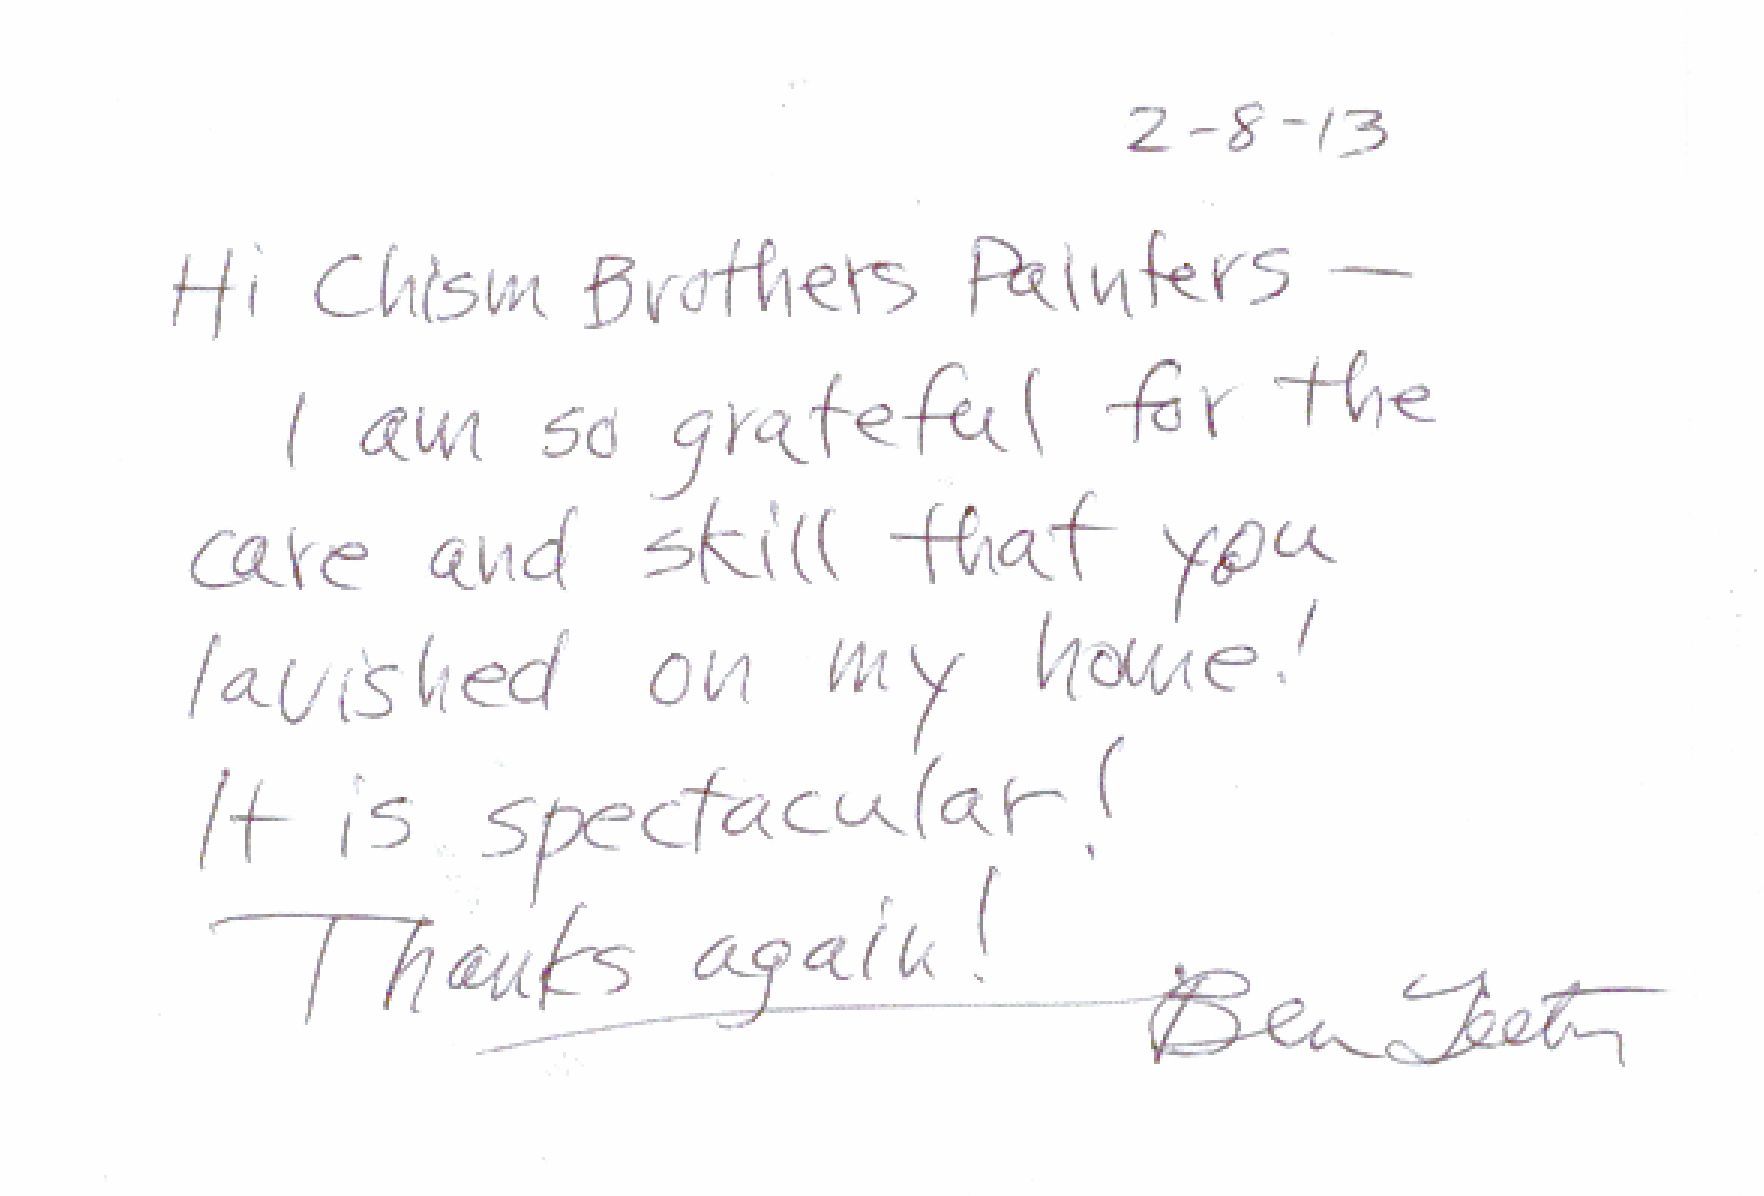 2-8-13
Hi Chism Brothers Painters —
I am so grateful for the
care and skill that you
lavished on my home!
It is spectacular!
Thanks again!
Ben